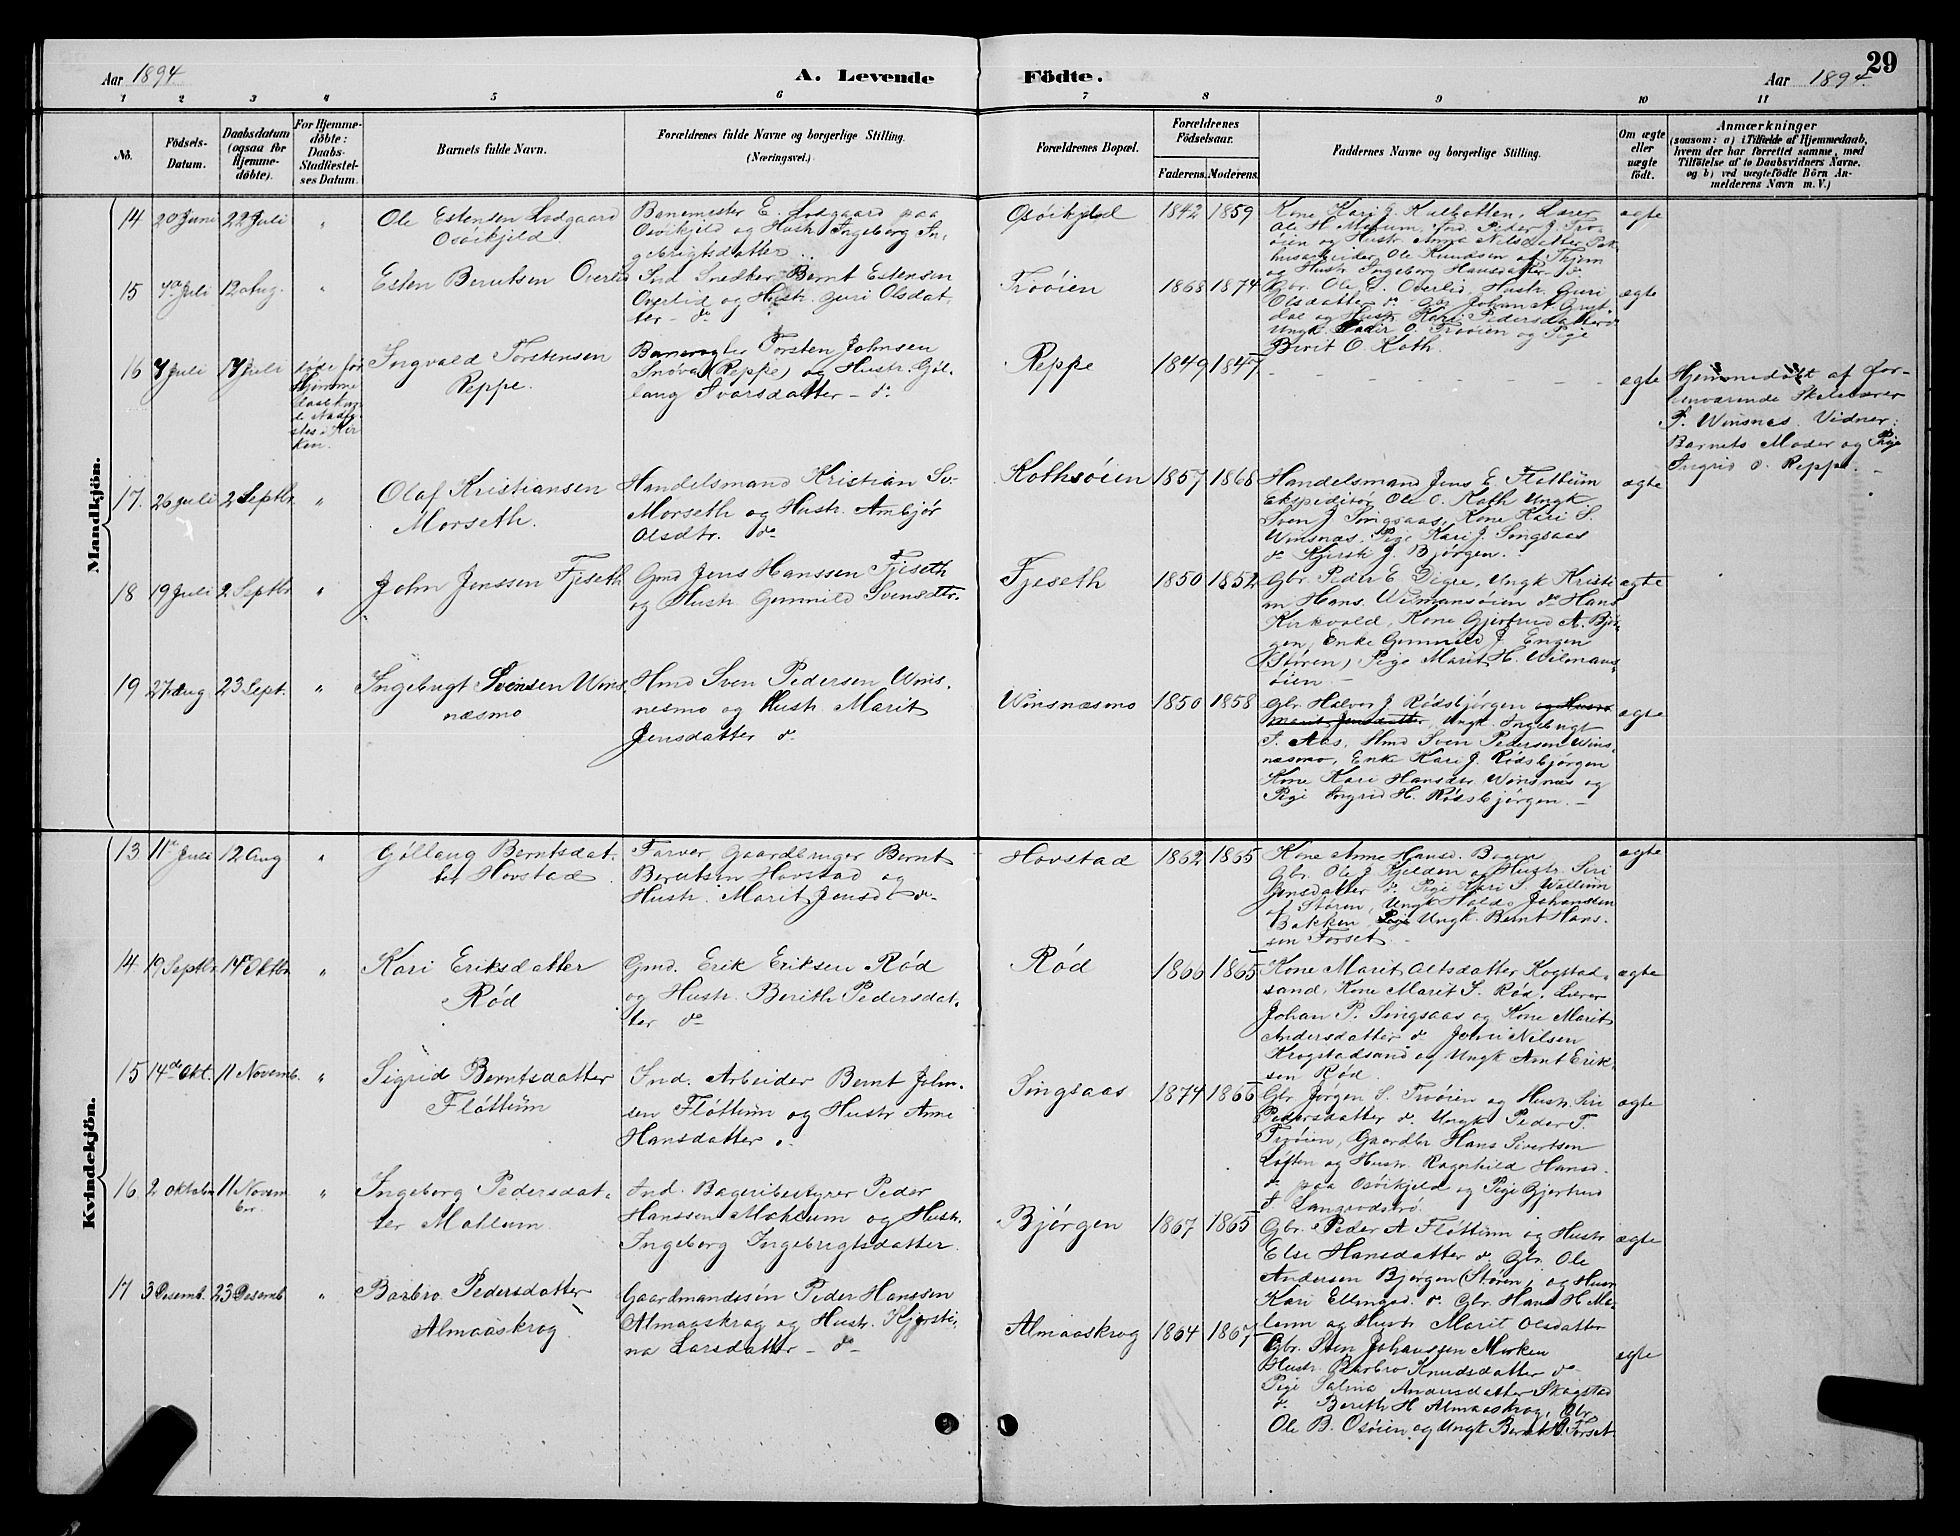 29
Aar 1894
A. Levende
Födte.
Aar 1894
1 2 3 4 5 6 7 8 9 10 11
No.
Födsels-
Datum.
Daabsdatum
(ogsaa for
Hjemme-
döbte).
For Hjemme-
döbte:
Daabs-
Stadfæstel-
ses Datum.
Barnets fulde Navn.
Forældrenes fulde Navne og borgerlige Stilling.
(Næringsvei.)
Forældrenes Bopæl.
Forældrenes
Födselsaar.
Faderens. Moderens.
Faddernes Navne og borgerlige Stilling.
Om ægte
eller
uægte
født.
Anmærkninger
(saasom: a) i Tilfælde af Hjemmedaab,
hvem der har forrettet samme, med
Tilföielse af to Daabsvidners Navne,
og b) ved uægtefödte Börn An-
melderens Navn m. V.)
Mandkjön.
14 20 Juni 22 Juli "
Ole Estensen Lodgaard
Osöikjeld
Banemester E. Lodgaard paa
Osöikjeld og Hustr. Ingeborg In-
gebrigtsdatter
Osöikjeld 1842 1859
Kone Kari J. Kulbotten, Lærer
Ole H. Moxum, Ind. Peder J. Trö-
öien og Hustr. Anna Nilsdatter, Pak-
husarbeider Ole Knudsen af Thjem
og Hustr. Ingeborg Hansdatter do
ægte
15 Juli 12 Aug. "
Esten Berntsen Overlid
Ind. Snedker Bernt Estensen
Overlid og Hustr. Guri Olsdat-
ter - do
Tröøien 1868 1874
Gbr. Ole E. Overlid, Hustr. Guri
Olsdatter do
dal og Hustr. Kari Pedersdatter do
Ungk. Peder O. Tröøien og Pige
Berit O. Koth.
ægte
16 4 Juli 17 Juli
döde för
Hjemme
daab kun-
de stadfæ-
stes i Kir-
ken.
Ingvald Torstensen
Reppe.
Banevogter Torsten Johnsen
(Reppe) og Hustr. Göl-
laug Ivarsdatter - do
Reppe 1849 1847
- - - - - - -
ægte
Hjemmedöbt af for-
henværende Skolelærer
P. Winsnes. Vidner:
Barnets Moder og Pige
Ingrid O. Reppe. -
17. 26 Juli 2 Septbr "
Olaf Kristiansen
Morseth.
Handelsmand Kristian Sv.
Morseth og Hustr. Ambjör
Olsdtr. do
Kothsöien 1857 1868
Handelsmand Jens E. Flöttum
Ekspeditör Ole O. Koth Ungk.
Sven J. Singsaas, Kone Kari S.
Winsnæs, Pige Kari J. Singsaas
do Kjersti J. Bjørgen.
ægte
18 19 Juli 2 Septbr "
John Jenssen Fjeseth
Gmd Jens Hanssen Fjeseth
og Hustr. Gunnild Svensdtr.
Fjeseth 1850 1852
Gbr. Peder E. Digre, Ungk. Kristi-
an Hans. Wilmansöien do Hans
Kirkvold, Kone Gjertrud A. Björ-
gen, Enke Gunnild J. Engen
(Stören), Pige Marit H. Wilmans-
öien -
ægte
19 27 Aug 23 Sept. "
Ingebrigt Svensen Wins-
næsmo
Hmd Sven Pedersen Wins-
nesmo og Hustr. Marit
Jensdatter do
Winsnæsmo 1850 1858
Gbr. Halvor J. Rødsbjörgen og Hustr.
Marit Jensdatter, Ungk. Ingebrigt
S. Aas, Hmd Sven Pedersen Wins-
næsmo, Enke Kari J. Rödsbjörgen
Kone Kari Hansdtr Winsnæs og
Pige Ingrid H. Rödsbjørgen. -
ægte
Kvindekjön.
13. 11te Juli 12 Aug "
Göllaug Berntsdat-
ter Hovstad
Farver, Gaardbruger Bernt
Berntsen Hovstad og
Hustr. Marit Jensdt do
Hovstad 1862 1865
Kone Anne Hansd. Bogen
Gbr. Ole J. Kjelden og Hustr. Siri
Jensdatter do Pige Kari S. Wollum
af Stören, Ungk Halds Johansen
Bakken Pige Ungk. Bernt Hans-
sen Forset. -
ægte
14. 19 Septbr 14de Oktbr "
Kari Eriksdatter
Rød
Gmd. Erik Eriksen Rød
og Hustr. Berith Pedersdat-
ter do
Rød 1866 1865
Kone Marit Olsdatter Kogstad-
sand, Kone Marit S. Rød, Lærer
Johan P. Singsaas og Kone Marit
Andersdatter do John Nilsen
Krogstadsand og Ungk. Arnt Erik-
sen Rød.
ægte
15 14de Okt. 11 Novemb. "
Sigrid Berntsdatter
Flöttum
Ind. Arbeider Bernt John-
sen Flöttum og Hustr. Anne
Hansdatter
Singsaas 1874 1866
Gbr. Jörgen S. Tröien og Hustr. Siri
Pedersdatter do Ungk. Peder F.
Tröien, Gaardbr Hans Sivertsen
Löften og Hustr. Ragnhild Hansd.
do paa Osöikjeld og Pige Gjertrud
J. Langvodströ.
ægte
16. 2 Oktober 11 Novem-
ber. "
Ingeborg Pedersdat-
ter Moxum
Ind. Bageribestyrer Peder
Hanssen Moxum og Hustr.
Ingeborg Ingebrigtsdatter.
Bjørgen 1867 1865
Gbr. Peder A Flöttum og Hustr
Else Hansdatter do Gbr. Ole
Andersen Bjørgen (Stören) og Hustr
Kari Ellingsd. do Gbr. Hans H. Ma-
lum og Hustr Marit Olsdatter
ægte
17 3 Desemb. 23 Desemb "
Barbro Pedersdatter
Almaaskrog
Gaardmandssön Peder Hanssen
Almaaskrog og Hustr. Kjersti-
na Larsdatter - do -
Almaaskrog 1864 1867
Gbr. Sten Johanssen Morken
Hustr. Barbro Knudsdatter do
Pige Salina Andersdatter Skogstad
do Berith H. Almaaskrog, Gbr.
Ole B. Osöien og Ungk Bernt B. Forset.
ægte